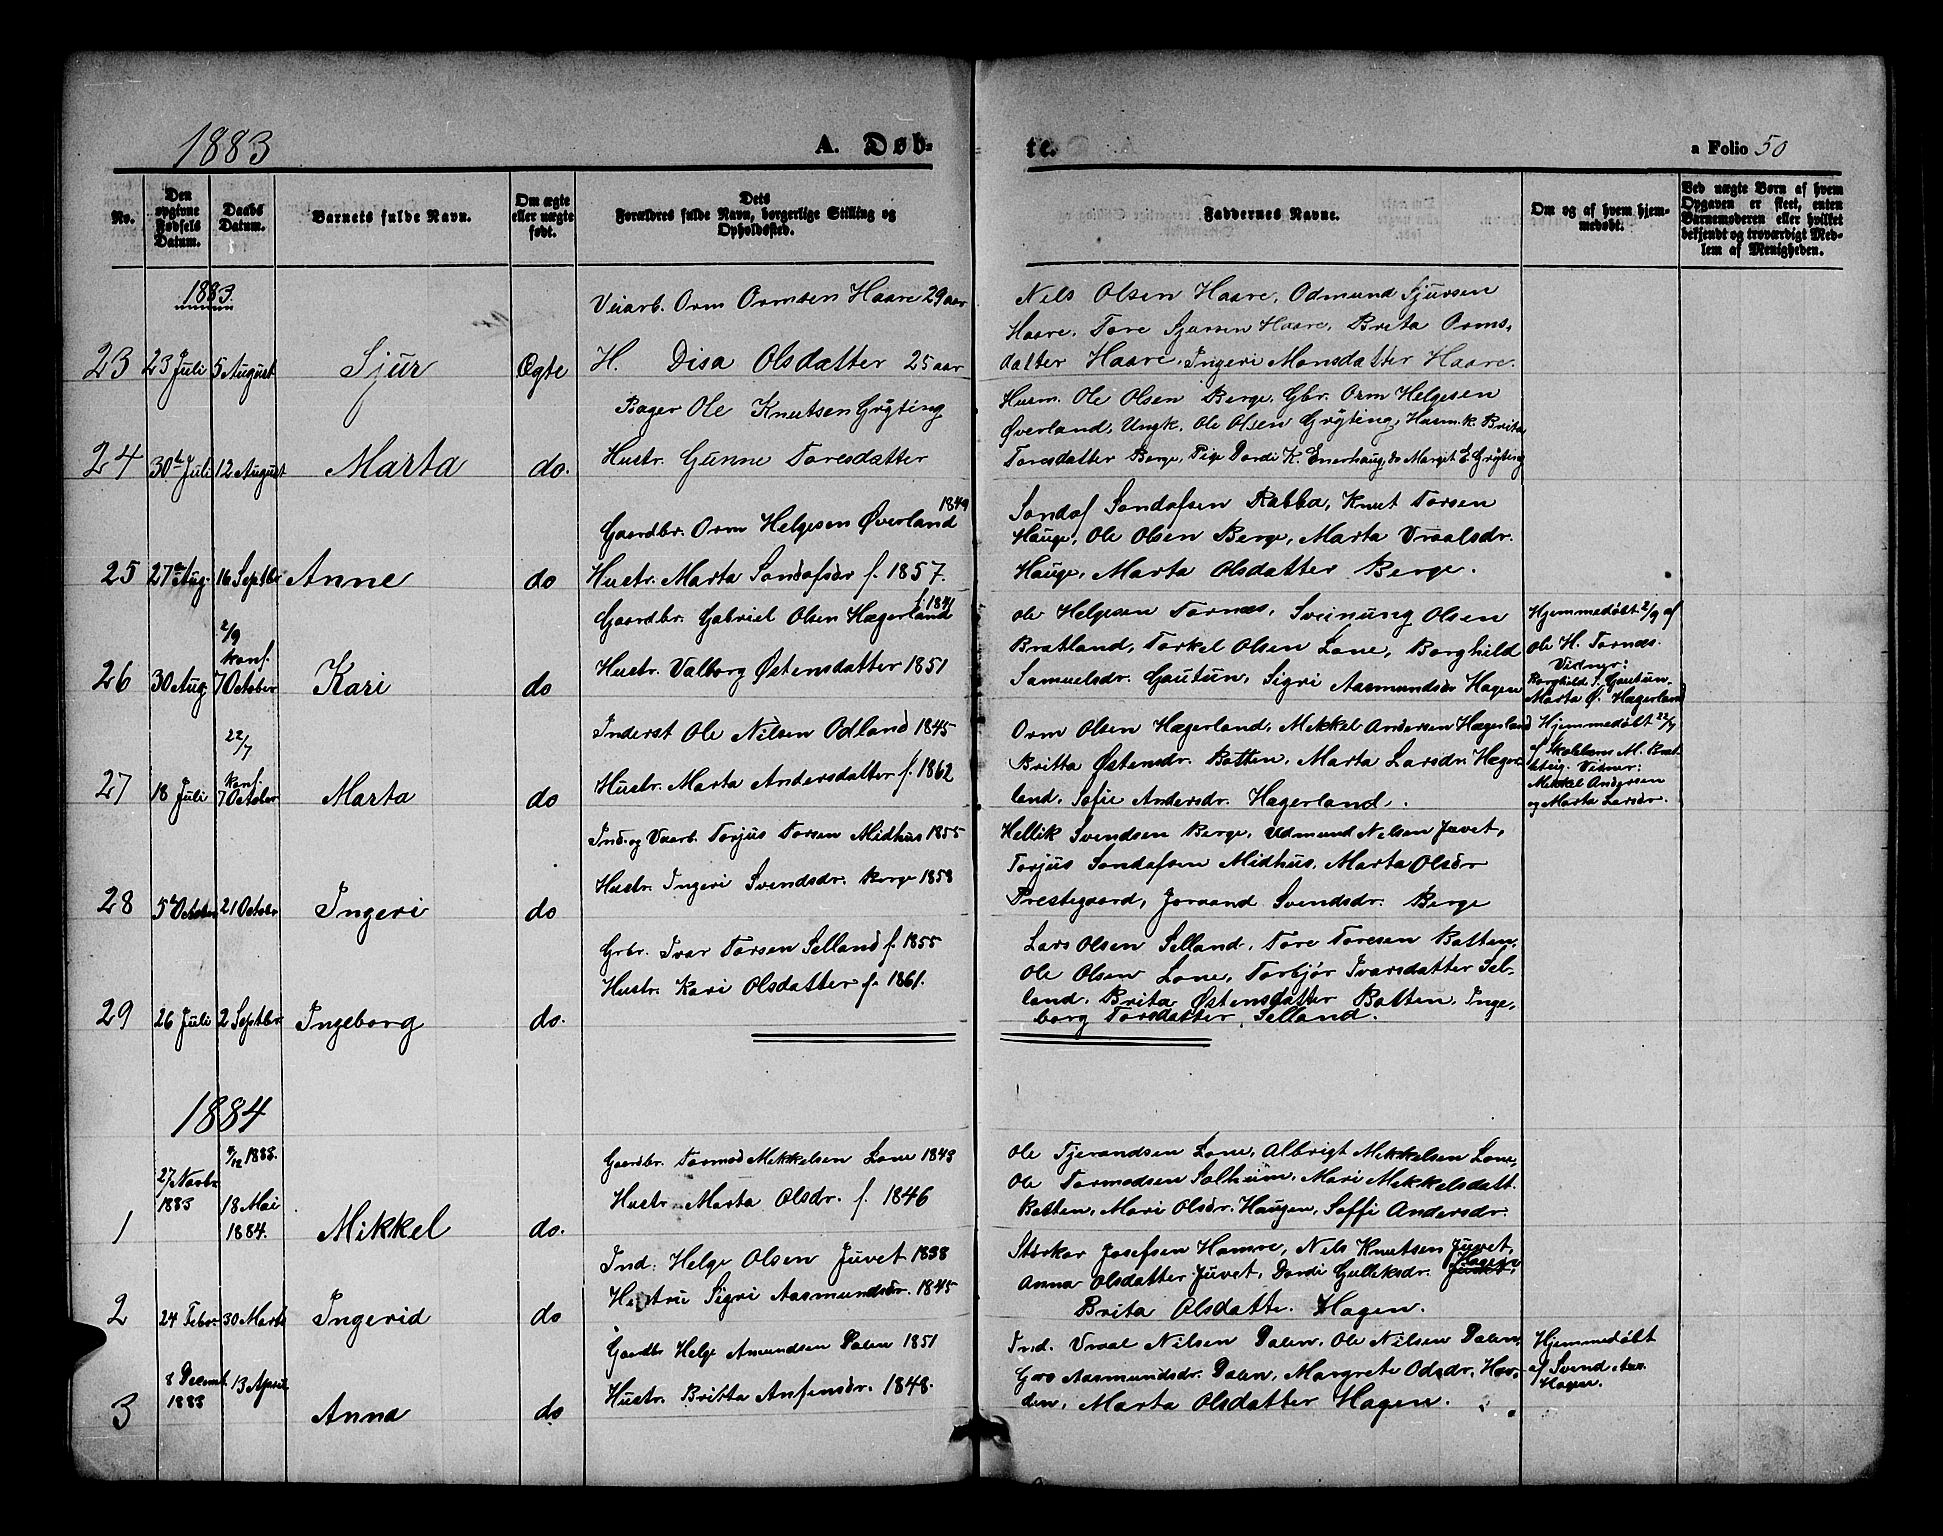 1883
A. Døb-
te.
a Folio 50
No.
Den opgivne Fødsels Datum.
Daabs Datum.
Barnets fulde Navn.
Om ægte eller uægte født.
Dets Forældres fulde Navn, borgerlige Stilling og Opholdssted.
Faddernes Navne.
Om og af hvem hjemmedøbt.
Ved uægte Børn af hvem Opgaven er skeet, enten Barnemoderen eller hvilket bekjendt og troværdigt Medlem af Menigheden.
1883.
23 23 Juli 5 August Sjur Ægte
Veiarb. Orm Ormsen Haare 29 aar
H. Disa Olsdatter 25 aar
Nils Olsen Haare, Odmund Sjursen
Haare, Tore Sjursen Haare, Brita Orms-
datter Haare, Ingeri Monsdatter Haare.
24 30te Juli 12 August Marta do.
Bager Ole Knutsen Grytting
Hustr. Gunne Toresdatter
Husm. Ole Olsen Berge, Gbr. Orm Helgesen
Øverland, Ungk. Ole Olsen Grytting, Husm.k. Brita
Toresdatter Berge, Pige Dordi K. Enerhaug, do Margit E. Grytting
25 27de Aug. 16 Septbr Anne do
Gaardbr. Orm Helgesen Øverland 1849
Hustr. Marta Sondofsdr f. 1857.
Sondof Sondofsen Rabba, Knut Torsen
Hauge, Ole Olsen Berge, Marta Vraalsdr.
Hauge, Marta Olsdatter Berge.
26 30 Aug 2/9 konf. 7 October Kari do
Gaardbr. Gabriel Olsen Hægerland f. 1841
Hustr. Valborg Østensdatter 1851
Ole Helgesen Tornæs, Sveinung Olsen
Bratland, Torkel Olsen Lone, Borghild
Samuelsdr. Gautun, Sigri Aasmundsdr Hagen
Hjemmedøbt 2/9 af
Ole H. Tornæs.
Vidner:
Borghild S. Gautun.
Marta Ø. Hægerland
27 18 Juli 22/7 konf. 7 October Marta do
Inderst Ole Nilsen Odland 1845
Hustr. Marta Andersdatter f. 1862
Orm Olsen Hægerland, Mekkel Andersen Hægerland
Britta Østensdr. Botten, Marta Larsdr. Hæger-
land, Sofie Andersdr. Hagerland.
Hjemmedøbt 22/7
Vidner:
Mekkel Andersen
og Marta Larsdr.
28 5te October 21 Octobr Ingeri do
Ind. og Veiarb. Torjus Torsen Midhus 1855
Hustr. Ingeri Svendsdr. Berge 1858
Hellik Svendsen Berge, Udmund Nilsen Juvet,
Torjus Sondofsen Midhus, Marta Olsdr
Prestegaard, Joraand Svendsdr. Berge
29 26 Juli 2 Septbr Ingeborg do.
Grbr. Ivar Torsen Selland f. 1855
Hustr. Kari Olsdatter f. 1861.
Lars Olsen Selland, Tore Toresen Botten,
Ole Olsen Lone, Torbjør Ivarsdatter Sel-
land, Brita Østensdatter Botten, Inge-
borg Torsdatter Selland.
1884
1 27 Novbr 1883 /12 1883. 18 Mai 1884. Mikkel do.
Gaardbr. Tormod Mekkelsen Lone 1843
Hustr. Marta Olsdr. f. 1846
Ole Tjerandsen Lone, Albrigt Mekkelsen Lone,
Ole Tormodsen Solheim, Mari Mekkelsdatt.
Botten, Mari Olsdr. Haugen, Soffi Andersdr.
2 24 Febr. 30 Marts Ingerid do
Ind. Helge Olsen Juvet 1838
Hustru Sigri Aasmundsdr. 1845
Størkor Josefsen Hamre, Nils Knutsen Juvet,
Anna Olsdatter Juvet, Dordi Gulleiksdr. Juvet, Hagen
Brita Olsdatte. Hagen.
3 8 Decemb. 1883 13 April Anna do
Gaardbr Helge Amundsen Dalen 1851
Hustr. Britta Anfinsdr. 1848.
Ind. Vraal Nilsen Dalen, Ole Nilsen Dalen,
Gro Aasmundsdr. Dalen, Margrete Odsdr. Hor-
den, Marta Olsdatter Hagen.
Hjemmedøbt
af Svend Aas.
Hagen.